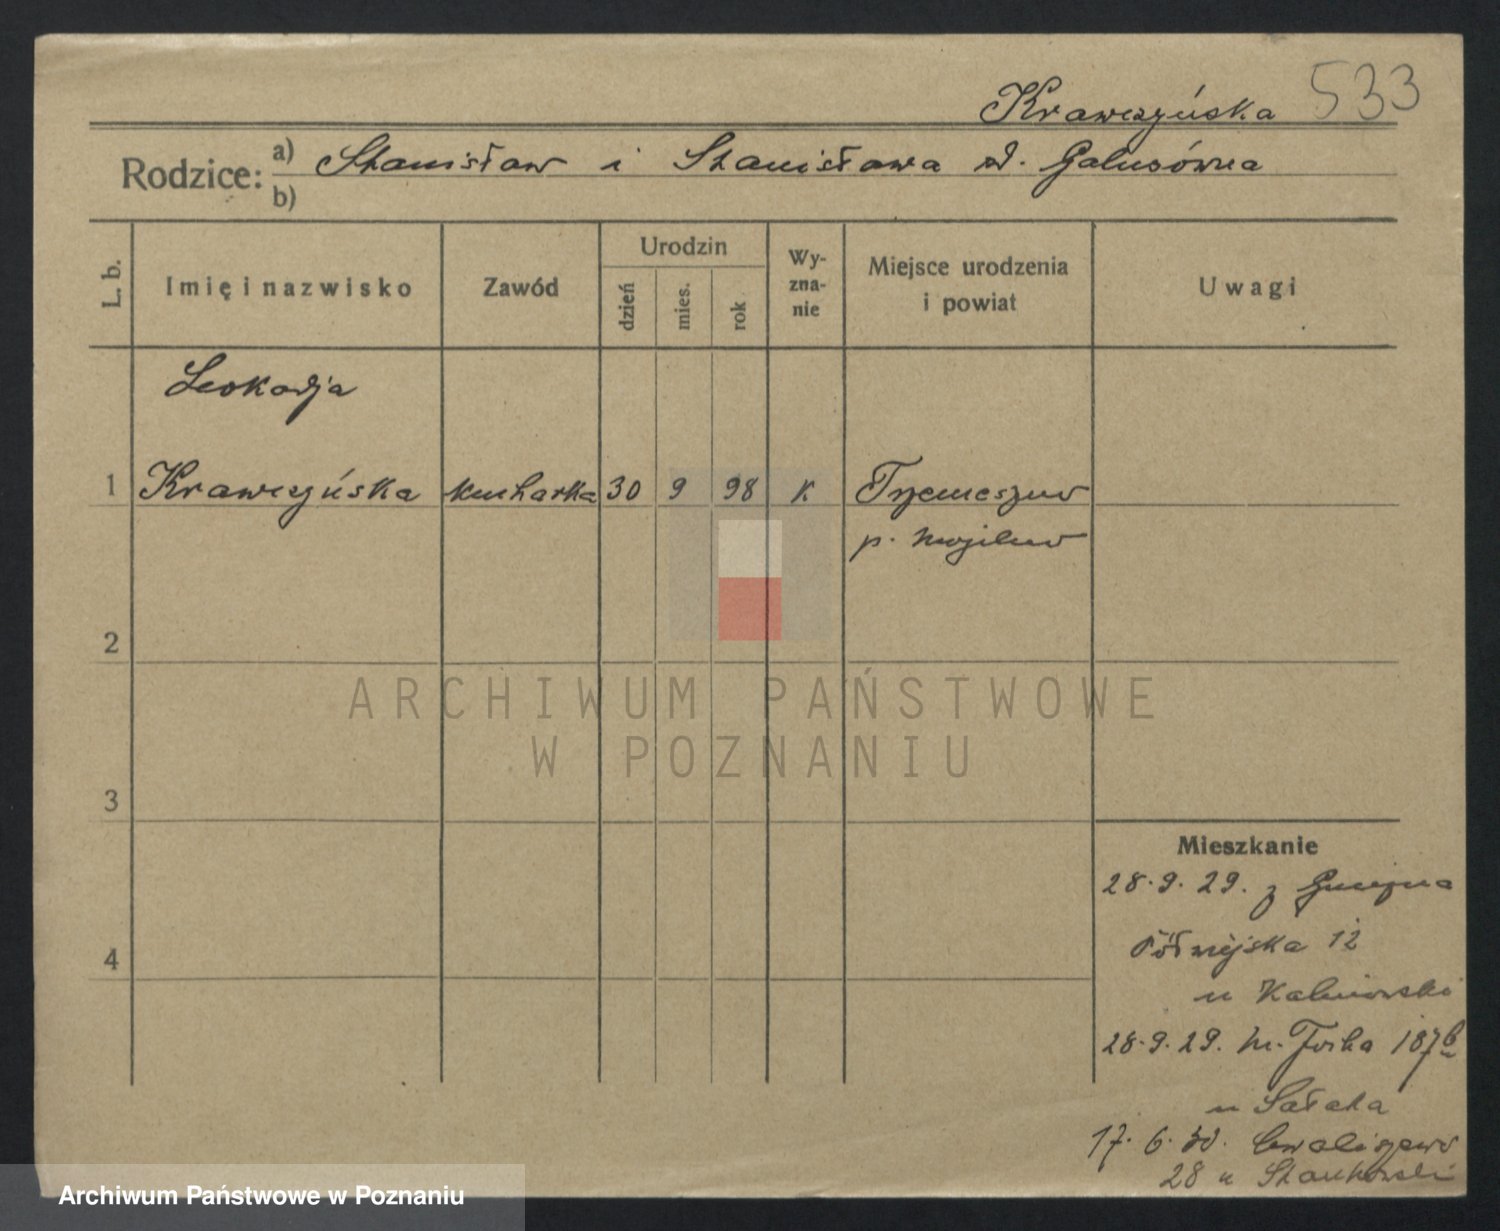 Krawczyńska 533
Rodzice: a) Stanisław i Stanisława d. Galusówna
b)
L. b.
Imię i nazwisko
Zawód
Urodzin
dzień
mies.
rok
Wy-
zna-
nie
Miejsce urodzenia
i powiat
Uwagi
Leokadja
1 Krawczyńska kucharka 30 9 98 K Trzemeszno
p. Mogilno
2
3
4
Mieszkanie
28.9.29. z Gniezna
Półwiejska 12
u Kalinowski
28.9.29. M. Focha 187b
u Sałata
17.6.30. Chwaliszewo
28 u Stankowski
ARCHIWUM PAŃSTWOWE
W POZNANIU
Archiwum Państwowe w Poznaniu